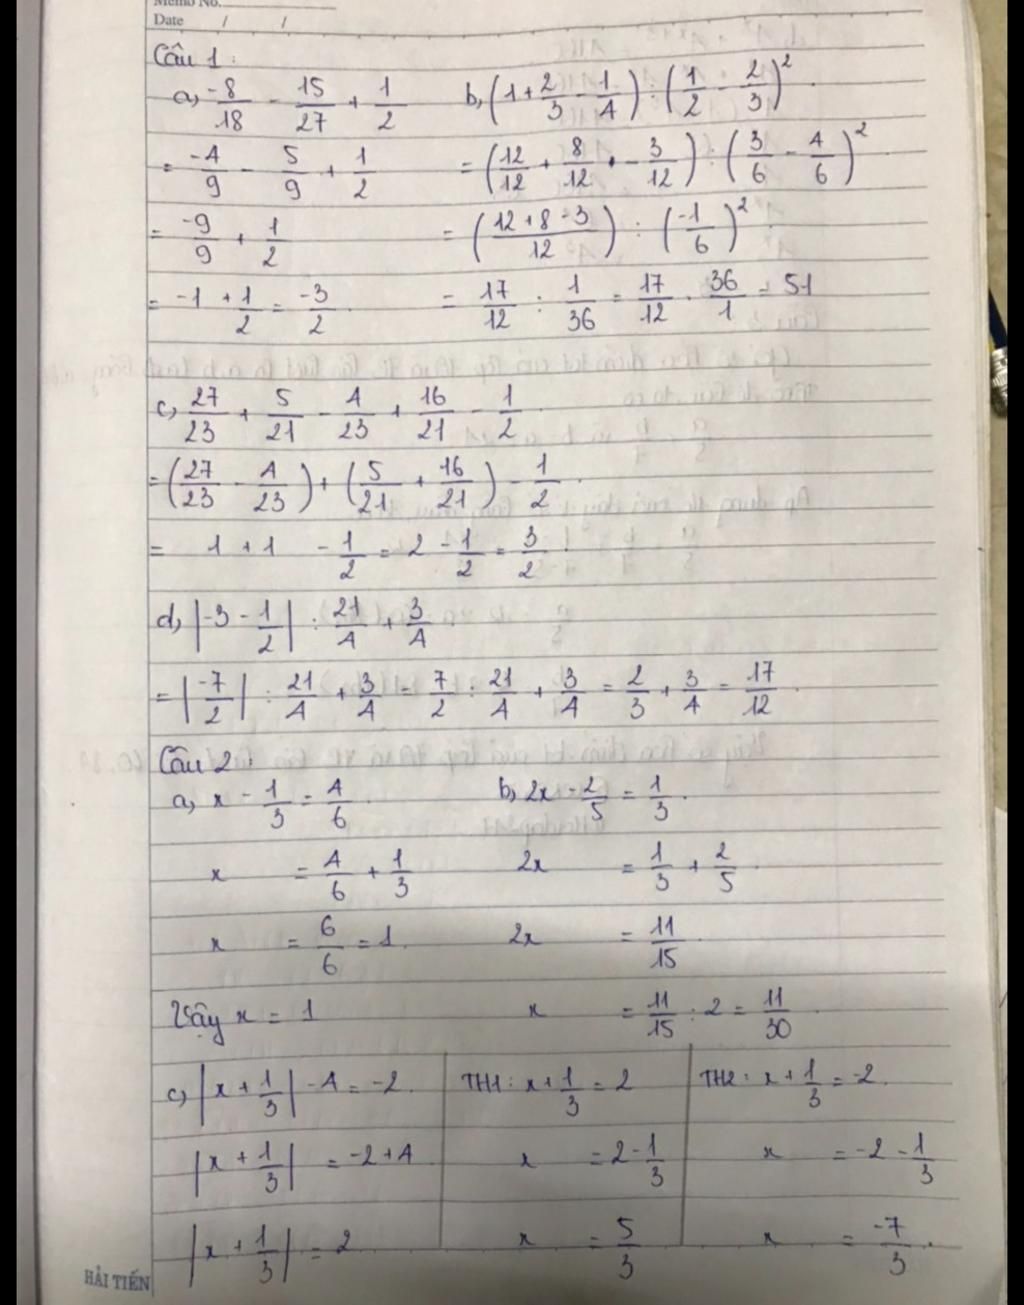 Memo No.
Date / /
Câu 1:
a, -8/18 - 15/27 + 1/2
b, (1 + 2/3 - 1/4) : (1/2 - 2/3)²
= -4/9 - 5/9 + 1/2
= (12/12 + 8/12 + - 3/12) : (3/6 - 4/6)²
= -9/9 + 1/2
= ((12 + 8 - 3)/12) : (-1/6)²
= -1 + 1/2 = -3/2
= 17/12 : 1/36 = 17/12 . 36/1 = 51
c, 27/23 + 5/21 - 4/23 + 16/21 - 1/2
= (27/23 - 4/23) + (5/21 + 16/21) - 1/2
= 1 + 1 - 1/2 = 2 - 1/2 = 3/2
d, |-3 - 1/2| : 21/4 + 3/4
= |-7/2| : 21/4 + 3/4 = 7/2 : 21/4 + 3/4 = 2/3 + 3/4 = 17/12
Câu 2:
a, x - 1/3 = 4/6
b, 2x - 2/5 = 1/3
x = 4/6 + 1/3
2x = 1/3 + 2/5
x = 6/6 = 1
2x = 11/15
Vậy x = 1
x = 11/15 : 2 = 11/30
c, |x + 1/3| - 4 = -2
|x + 1/3| = -2 + 4
|x + 1/3| = 2
TH1: x + 1/3 = 2
x = 2 - 1/3
x = 5/3
TH2: x + 1/3 = -2
x = -2 - 1/3
x = -7/3
HẢI TIẾN